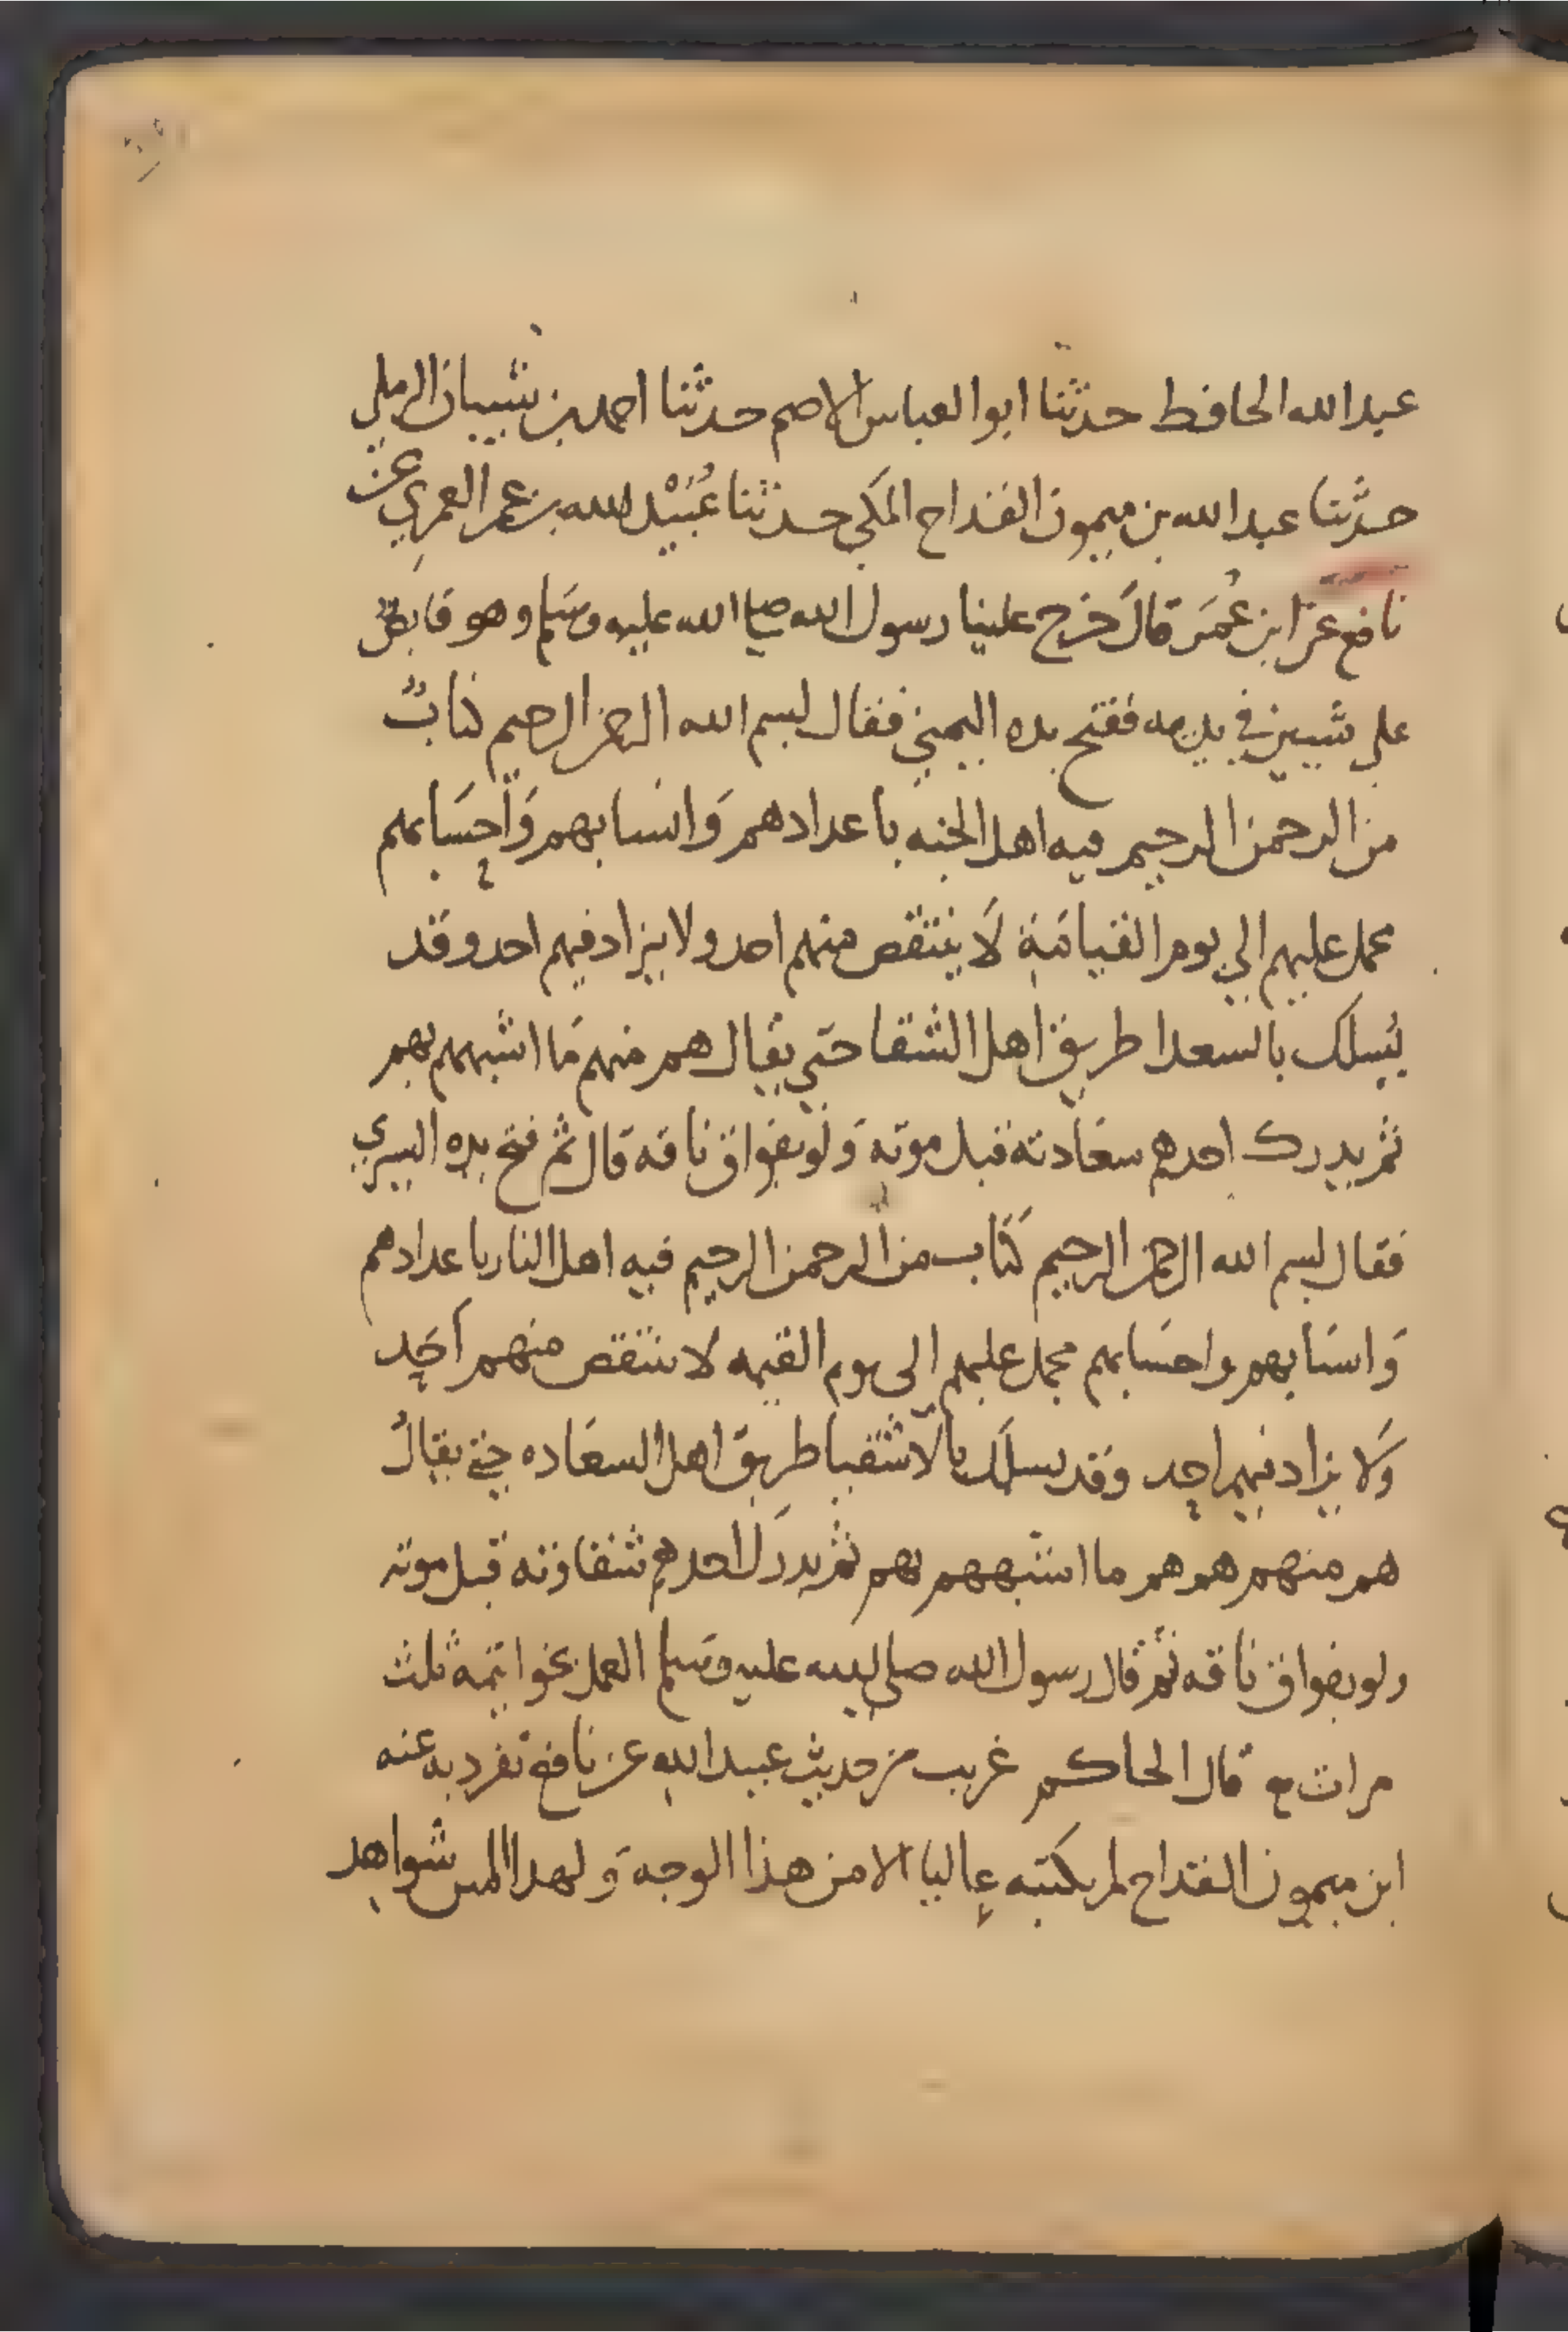 عبد الله الحافظ حدثنا ابو العباس الاصم حدثنا احمد بن شيبان الرملي
حدثنا عبد الله بن ميمون القداح المكي حدثنا عُبَيْد الله بن عمر العمري عن
نافع عن ابن عُمَر قالَ خرج علينا رسول الله صلى الله عليه وسَلم وهو قابضٌ
علي شيين في يديه ففتح يده اليمني فقال بسم الله الرحمن الرحيم كتابٌ
من الرحمن الرحيم فيه اهل الجنه باعدادهم وَانسابهم وَاحسَابهم
مجمل عليهم الي يوم القيامَة لَا ينتقص منهم احد ولا يزاد فيهم احد وقد
يُسلك بالسعدا طريق اهل الشقا حتي يقال هم منهم مَا اشبههم بهم
ثم يدرك احدهم سعَادته قبل موته وَلو بفواق ناقه قال ثم فتح يده اليسري
فقال بسم الله الرحمن الرحيم كتَاب من الرحمن الرحيم فيه اهل النار باعدادهم
وَانسَابهم واحسَابهم مجمل عليهم الى يوم القيمه لا ينتقص منهم اَحَد
وَلا يزاد فيهم احد وقد يسلَك بالاشقيا طريق اهل السعَاده حتي يقالُ
هم منهم هم هم ما اشبههم بهم ثم يدرَك احدهم شقاوته قبل موته
ولو بفواق ناقه ثم قال رسول الله صلى الله عليه وسَلم العمل بخواتمه ثلث
مرات قال الحاكم غريب من حديث عبيد الله عن نافع تفرد به عنه
ابن ميمون القداح لم يكتبه عاليا الا من هذا الوجه وَلهدا المتن شواهد